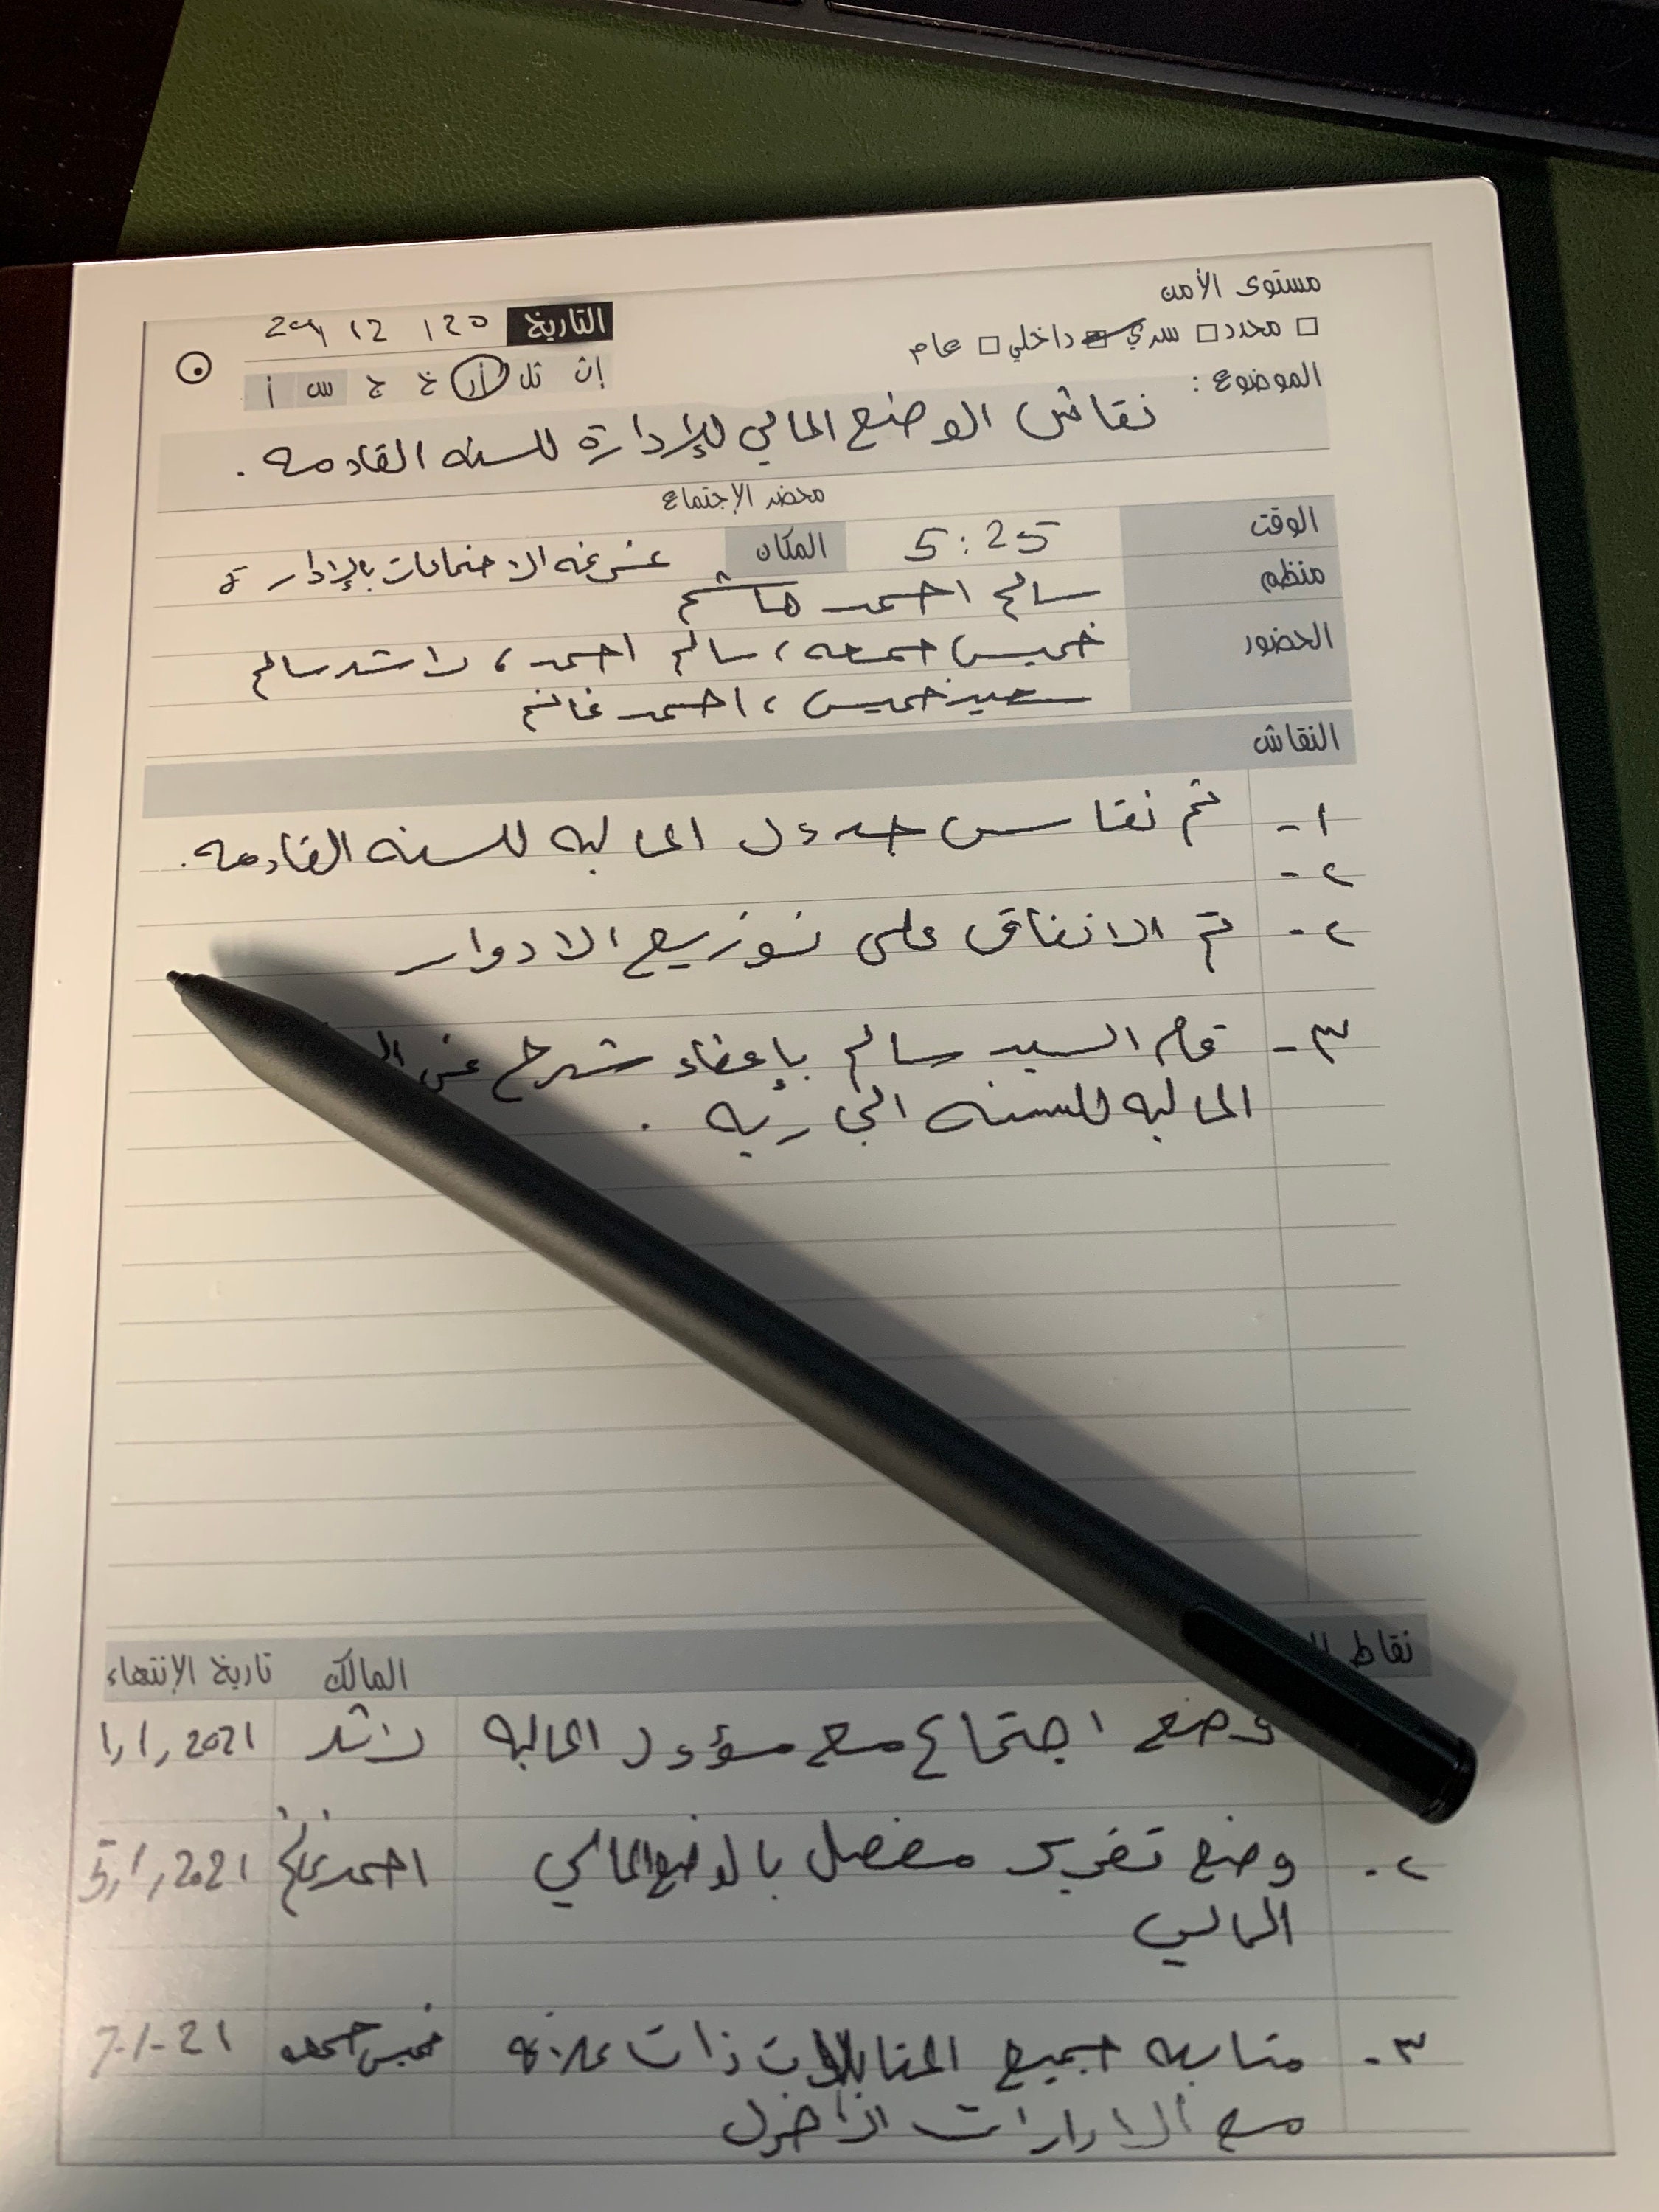 مستوى الأمن
□ محدد □ سري داخلي □ عام
التاريخ 20 12
إث ثل أر خ ج س أ
الموضوع: نقاش الوضع المالي للإدارة للسنه القادمه .
محضر الإجتماع
الوقت 5:25 المكان غرفه الاجتماعات بالإدارة
منظم سالم احمد هاشم
الحضور خميس جمعه ، سالم احمد ، راشد سالم
سعيد خميس ، احمد غانم
النقاش
١- تم نقاس جدول الماليه للسنه القادمه .
٢-
٢- تم الاتفاق على توزيع الادوار
٣- قام السيد سالم بإعطاء شرح عن
الماليه للسنه الجاريه .
نقاط المالك تاريخ الإنتهاء
وضع اجتماع مع مسؤول الماليه راشد 1,1,2021
٢- وضع تقرير مفصل بالوضع المالي احمد غانم 5,1,2021
المالي
٣- متابعه جميع ذات علاقة خميس جمعه 7-1-21
مع الادارات الأخرى